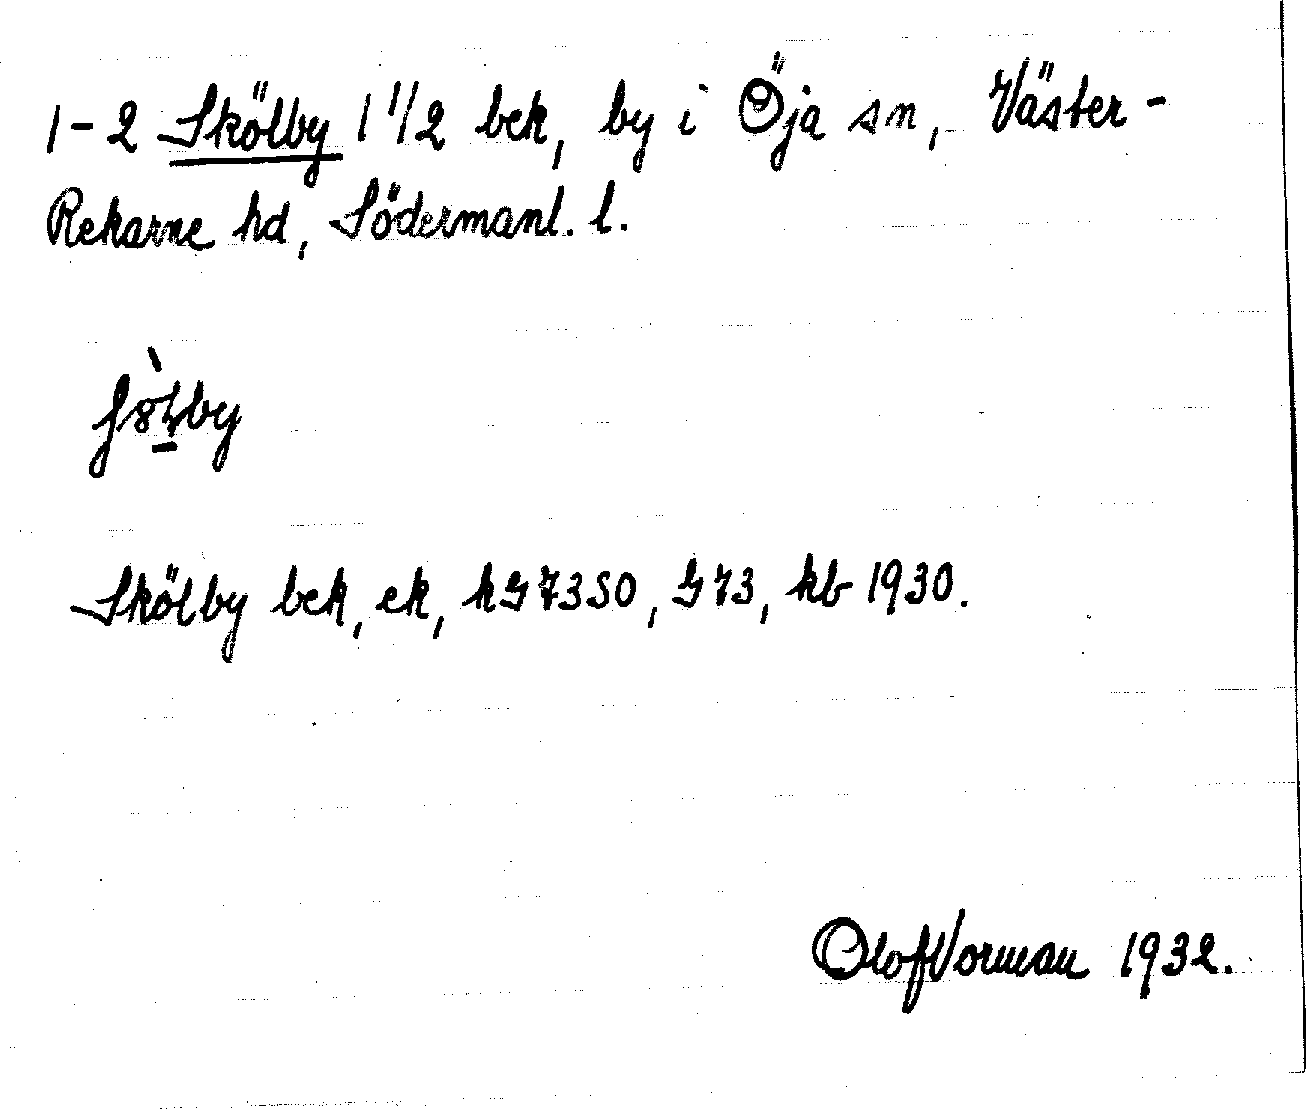 1-2 Skölby 1 1/2 bek, by i Öja sn, Väster-
Rekarne hd, Södermanl. l.
Skölby bek, ek, kG73SO, G73, kb 1930.
Olof Vorman 1932.